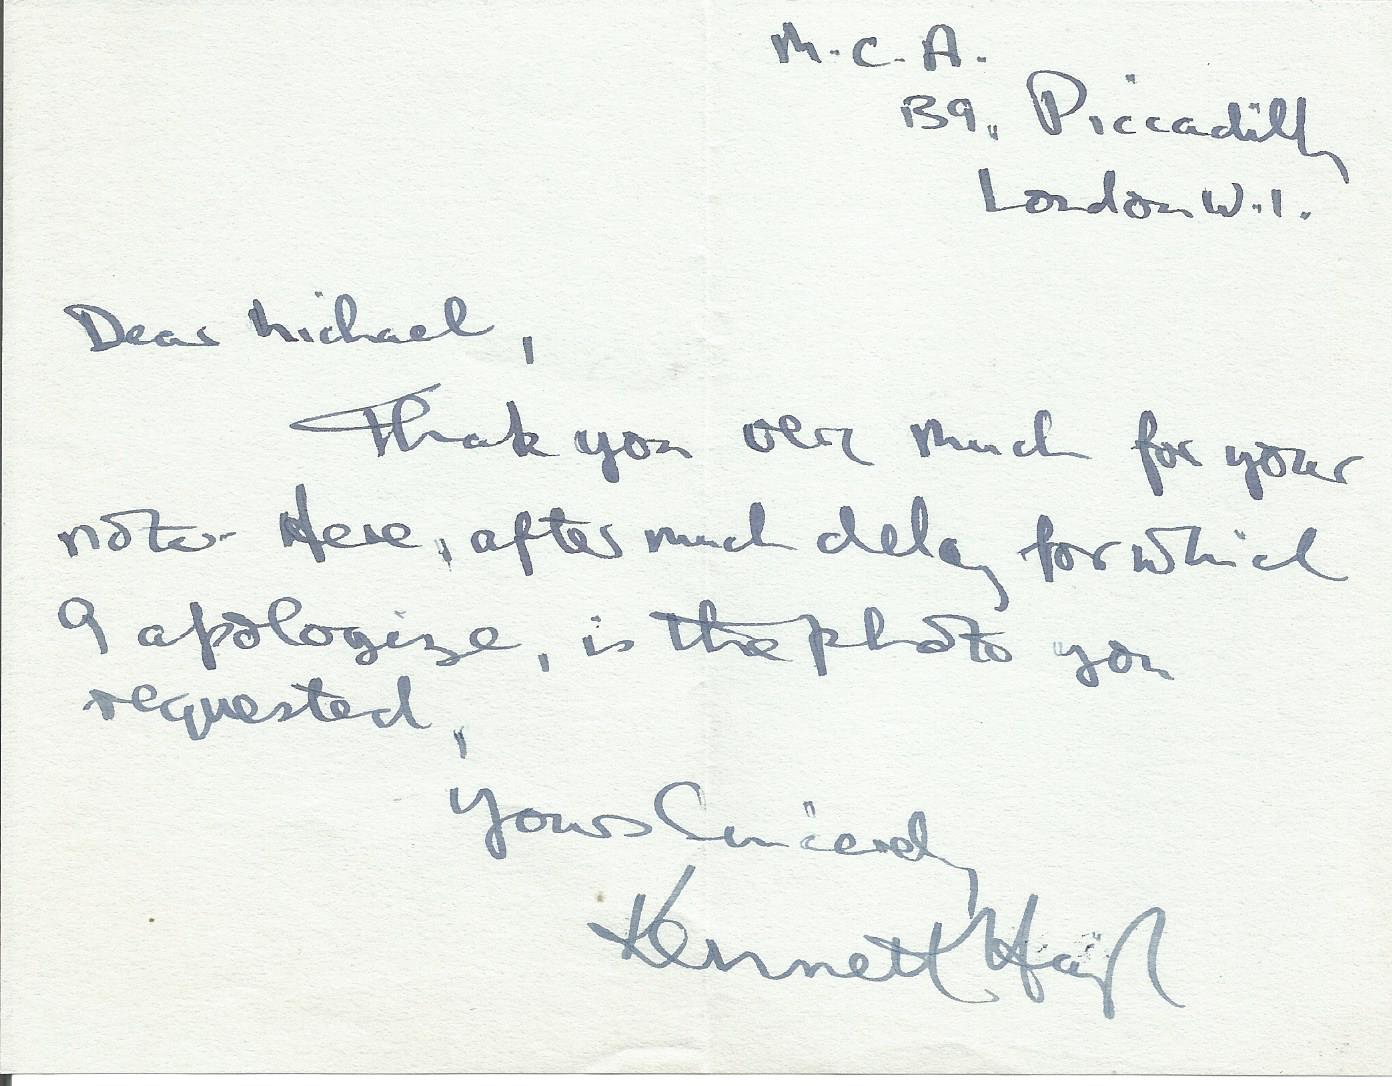 M.C.A.
139, Piccadilly
London W.1.
Dear Michael,
Thank you very much for your
note. Here, after much delay for which
I apologize, is the photo you
requested,
Yours Sincerely
Kenneth Haigh